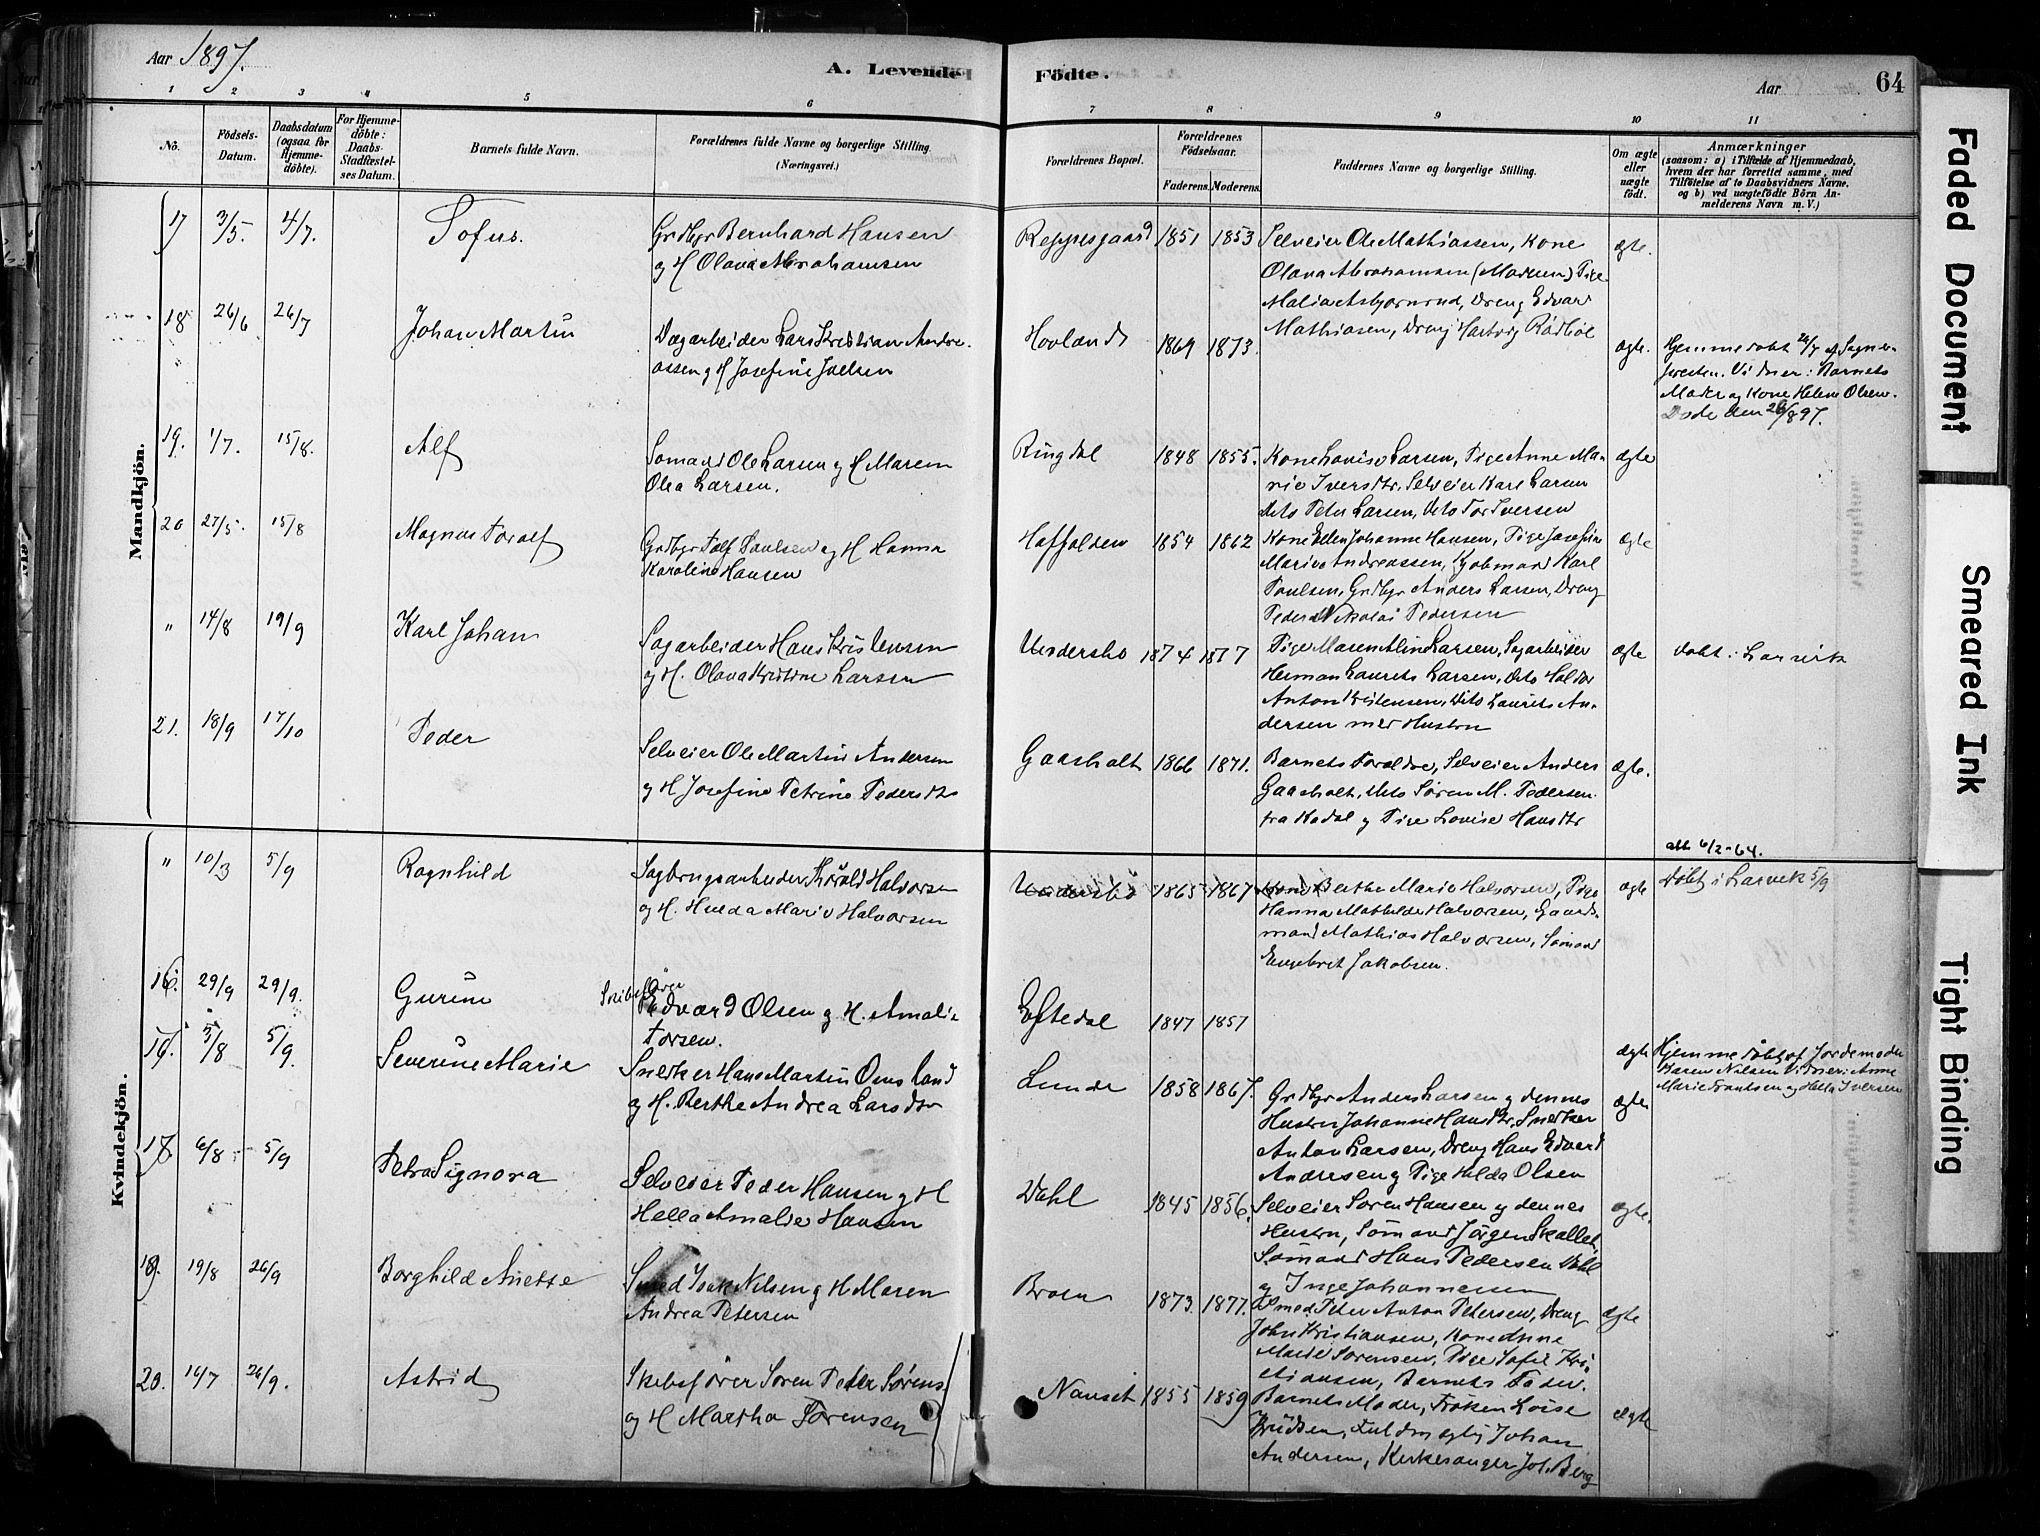 Aar 1897.
A. Levende
Födte.
Aar
64
1 2 3 4 5 6 7 8 9 10 11
No.
Födsels-
Datum.
Daabsdatum
(ogsaa for
Hjemme-
döbte).
For Hjemme-
döbte:
Daabs-
Stadfæstel-
ses Datum.
Barnets fulde Navn.
Forældrenes fulde Navne og borgerlige Stilling.
(Næringsvei.)
Forældrenes Bopæl.
Forældrenes
Födselsaar.
Faderens. Moderens.
Faddernes Navne og borgerlige Stilling.
Om ægte
eller
uægte
födt.
Anmærkninger
(saasom: a) i Tilfælde af Hjemmedaab,
hvem der har forrettet samme, med
Tilföielse af to Daabsvidners Navne.
og b) ved uægtefödte Börn An-
melderens Navn m. V.)
Mandkjön.
17 3/5. 4/7. Sofus.
Grdbgr Bernhard Hansen
og H Olava Abrahamsen
1851 1853
Selveier Ole Mathiassen, Kone
Olava Abrahamsen (Moderen) Pige
Malia Asbjørnrud, Dreng Edvard
Mathiasen, Dreng Hartvig Rødbøl
ægte.
18 26/6 26/7 Johan Martin
Dagarbeider Lars Kristian Andre-
assen og H Josefine Joelsen
Hovland 1869 1873.
ægte.
Hjemmedøbt 26/7 af Sogne-
presten. Vidner: Barnets
Moder og Kone Helene Olsen.
Døde den 26/8 97.
19. 1/7. 15/8. Alf
Sømand Ole Larsen og H Maren
Olea Larsen.
Ringdal 1848 1855.
Kone Lovise Larsen, Pige Anne Ma-
rie Iversdtr, Selveier Karl Larsen
Dito Peter Larsen, Dito Tor Iversen
ægte
20 27/5. 15/8 Magnus Toralf
Grdbgr Tolf Paulsen og H Hanna
Karoline Hansen
1854 1862
Kone Ellen Johanne Hansen, Pige Josefine
Marie Andreassen, Kjøbmand Karl
Paulsen, Grdbgr Anders Larsen, Dreng
Peder Nikolai Pedersen
ægte
" 14/8 19/9 Karl Johan
Sagarbeider Hans Kristensen
og H. Olava Kristine Larsen
Undersbo 1874 1877
Pige Maren Aline Larsen, Sagarbeider
Herman Laurits Larsen, Dito Haldor
Anton Kristensen, Dito Laurits An-
dersen med Hustru
ægte
Døbt i Larvik
21. 18/9 17/10 Peder
Selveier Ole Martin Andersen
og H Josefine Petrine Pedersdtr
Gaasholt 1866 1871.
Barnets Forældre, Selveier Anders
Gaasholt, Dito Søren M. Pedersen
fra Kodal og Pige Lovise Hansdtr
ægte.
att 6/2-64.
Kvindekjön.
" 10/3 5/9 Ragnhild
Sagbrugsarbeider Thorald Halvorsen
og H. Hulda Marie Halvorsen
Undersbo 1865 1867
Kone Berthe Marie Halvorsen, Pige
Hanna Mathilde Halvorsen, Gaard-
mand Mathias Halvorsen, Sømand
Engebret Jakobsen.
ægte
Døbt i Larvik 5/9
16. 29/9 29/9. Gurine
Skibsfører
Edvard Olsen og H. Amalie
Torsen.
Eftedal 1847 1857
ægte
Hjemmedøbt af Jordemoder
Karen Nilsen Vidner: Anne
Marie Frantsen og Hella Iversen
5/8 5/9. Severine Marie
Snedker Hans Martin Omsland
og H. Berthe Andrea Larsdtr
Lunde 1858 1867.
Grdbgr Anders Larsen og dennes
Hustru Johanne Hansdtr, Snedker
Anton Larsen, Dreng Hans Edvard
Andresen og Pige Hilda Olsen
ægte
6/8 5/9 Petra Signora
Selveier Peder Hansen og H
Hella Amalie Hansen
Dahl 1845 1856.
Selveier Søren Hansen og dennes
Hustru, Sømand Jørgen Skallet
Sømand Hans Pedersen Dahl
og Inge Johannesen
ægte.
19/8 26/9 Borghild Anette
Smed Isak Nilsen og H Maren
Andrea Petersen
1873. 1877.
Smed Peter Anton Petersen, Dreng
John Kristiansen, Kone Anne
Marie Sørensen, Pige Sofie Kri-
stiansen, Barnets Fader.
ægte
20. 14/7 26/9. Astrid
Skibsfører Søren Peder Sørens.
og H Martha Sørensen
Nanset 1855 1859
Barnets Moder, Frøken Loise
Knudsen, Fuldmægtig Johan
Andersen, Kirkesanger Joh. Berg
ægte
Faded Document
Smeared Ink
Tight Binding